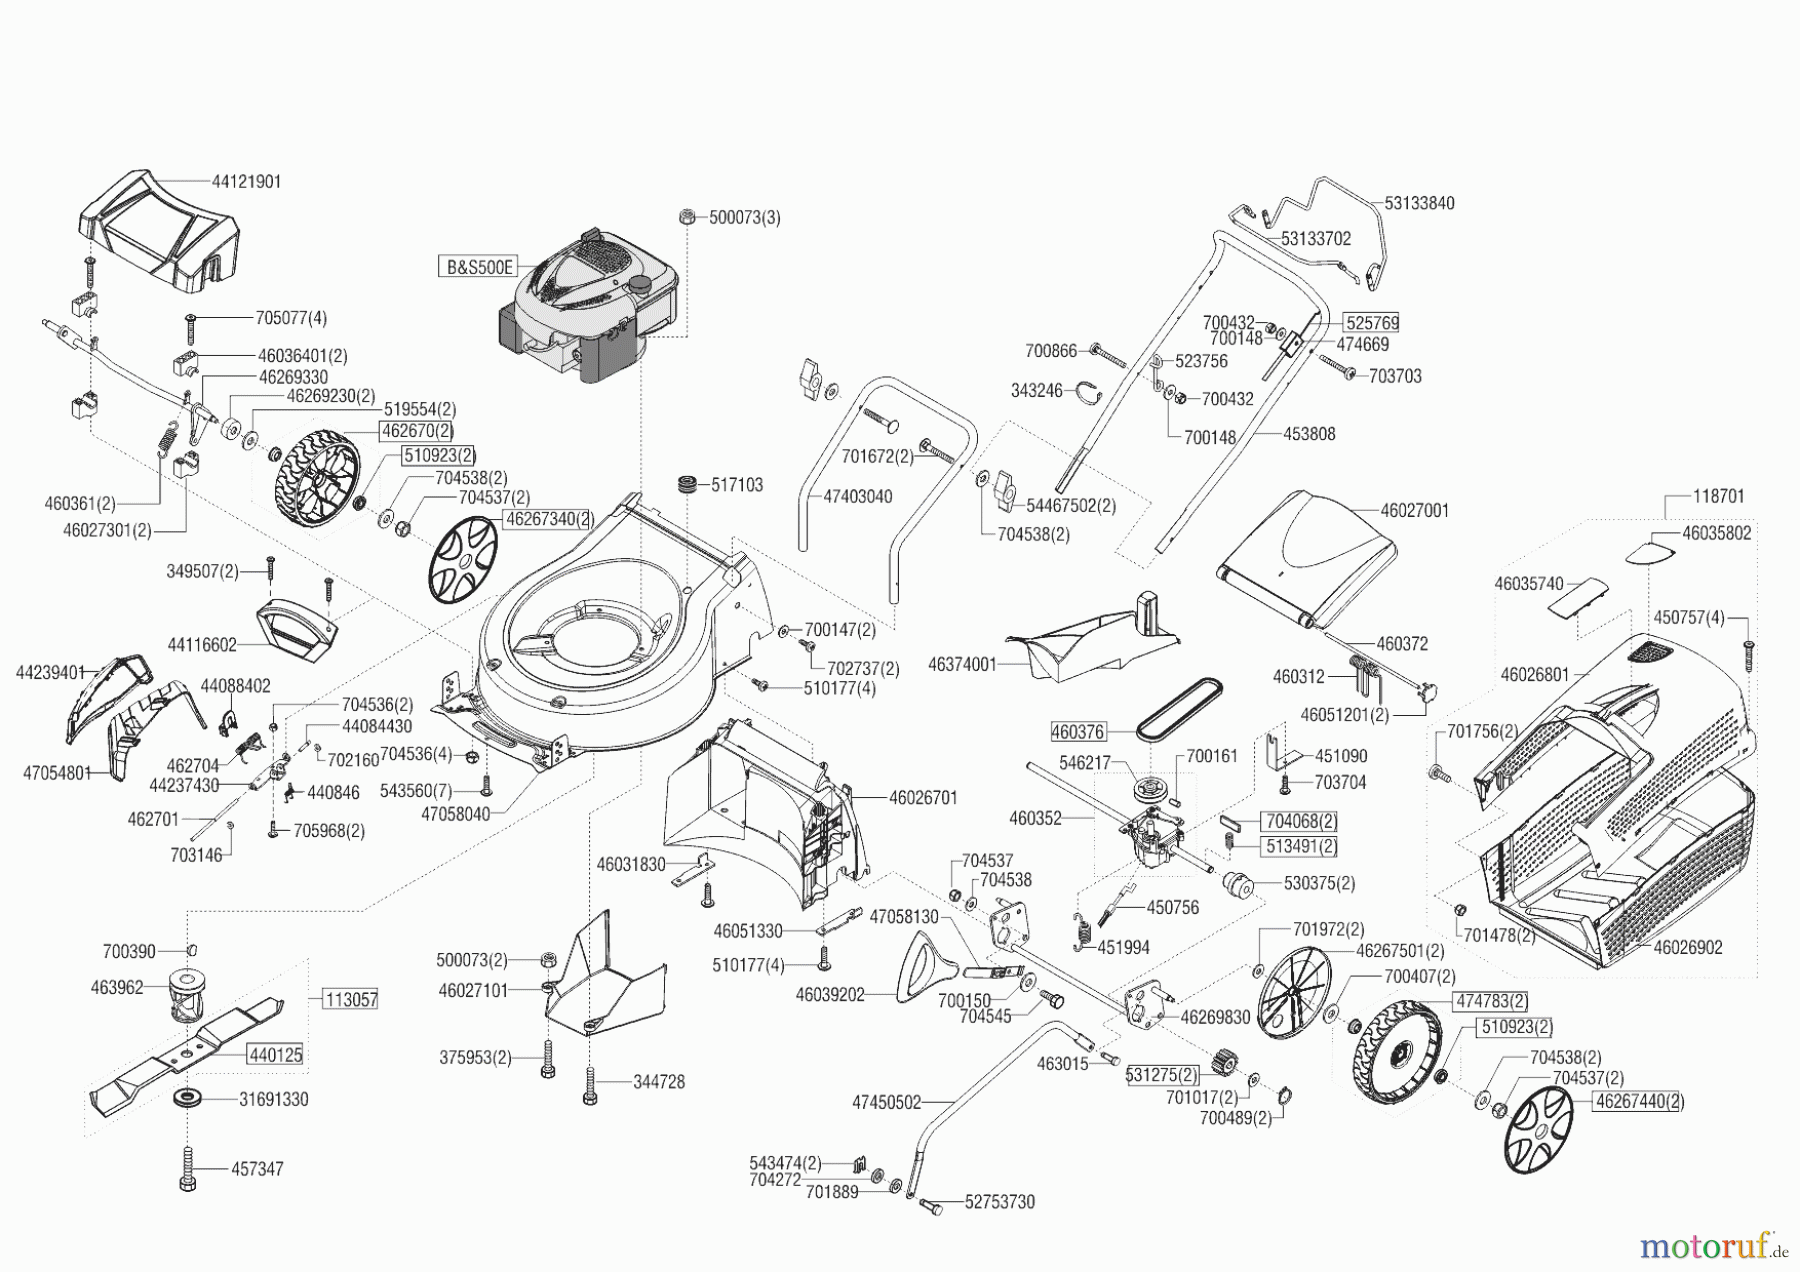 44121901
500073(3)
B&S500E
53133840
53133702
705077(4)
46036401(2)
46269330
46269230(2)
519554(2)
462670(2)
510923(2)
704538(2)
704537(2)
46267340(2)
460361(2)
46027301(2)
700432
700148
525769
474669
700866
523756
703703
343246
700432
700148
453808
701672(2)
517103
47403040
54467502(2)
704538(2)
46027001
118701
46035802
46035740
450757(4)
349507(2)
44116602
700147(2)
702737(2)
510177(4)
46374001
460372
460312
46051201(2)
46026801
44239401
44088402
704536(2)
44084430
702160
704536(4)
47054801
462704
44237430
440846
543560(7)
47058040
462701
705968(2)
703146
46026701
460376
546217
700161
451090
703704
701756(2)
460352
704068(2)
513491(2)
46031830
704537
704538
530375(2)
450756
47058130
451994
46051330
510177(4)
701972(2)
46267501(2)
700407(2)
474783(2)
510923(2)
701478(2)
46026902
700390
463962
113057
500073(2)
46027101
46039202
700150
704545
46269830
440125
375953(2)
344728
463015
531275(2)
701017(2)
700489(2)
704538(2)
704537(2)
46267440(2)
31691330
457347
47450502
543474(2)
704272
701889
52753730
motoruf.de